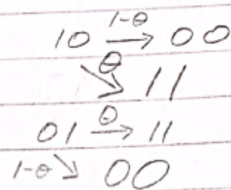 10 1-θ→ 00
θ↘ 11
01 θ→ 11
1-θ↘ 00